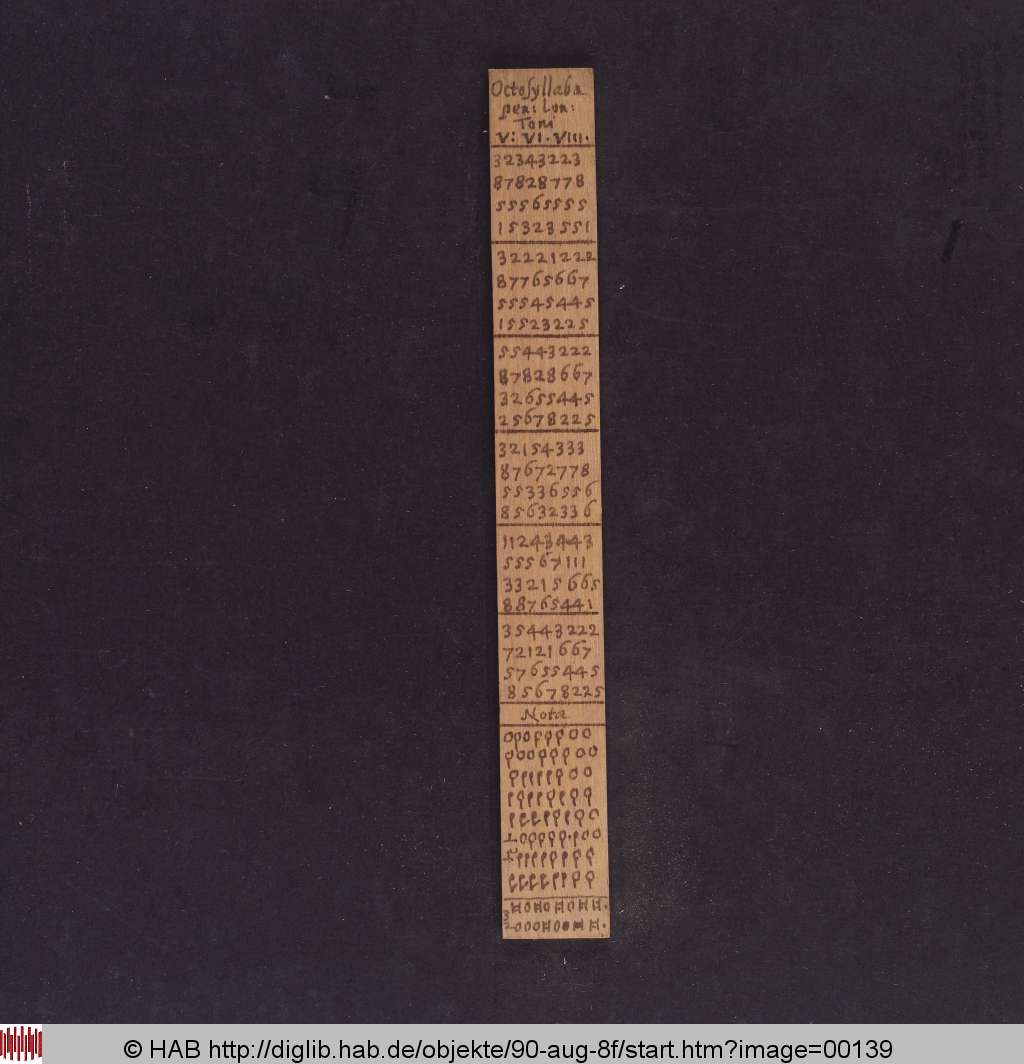 Octosyllaba
pen: Lon:
Toni
V: VI. VIII.
32343223
87828778
55565555
15323551
32221222
87765667
55545445
15523225
55443222
87828667
32655445
25678225
32154333
87672778
55336556
85632336
11243443
55567111
33215665
88765441
35443222
72121667
57655445
85678225
Notæ
© HAB http://diglib.hab.de/objekte/90-aug-8f/start.htm?image=00139